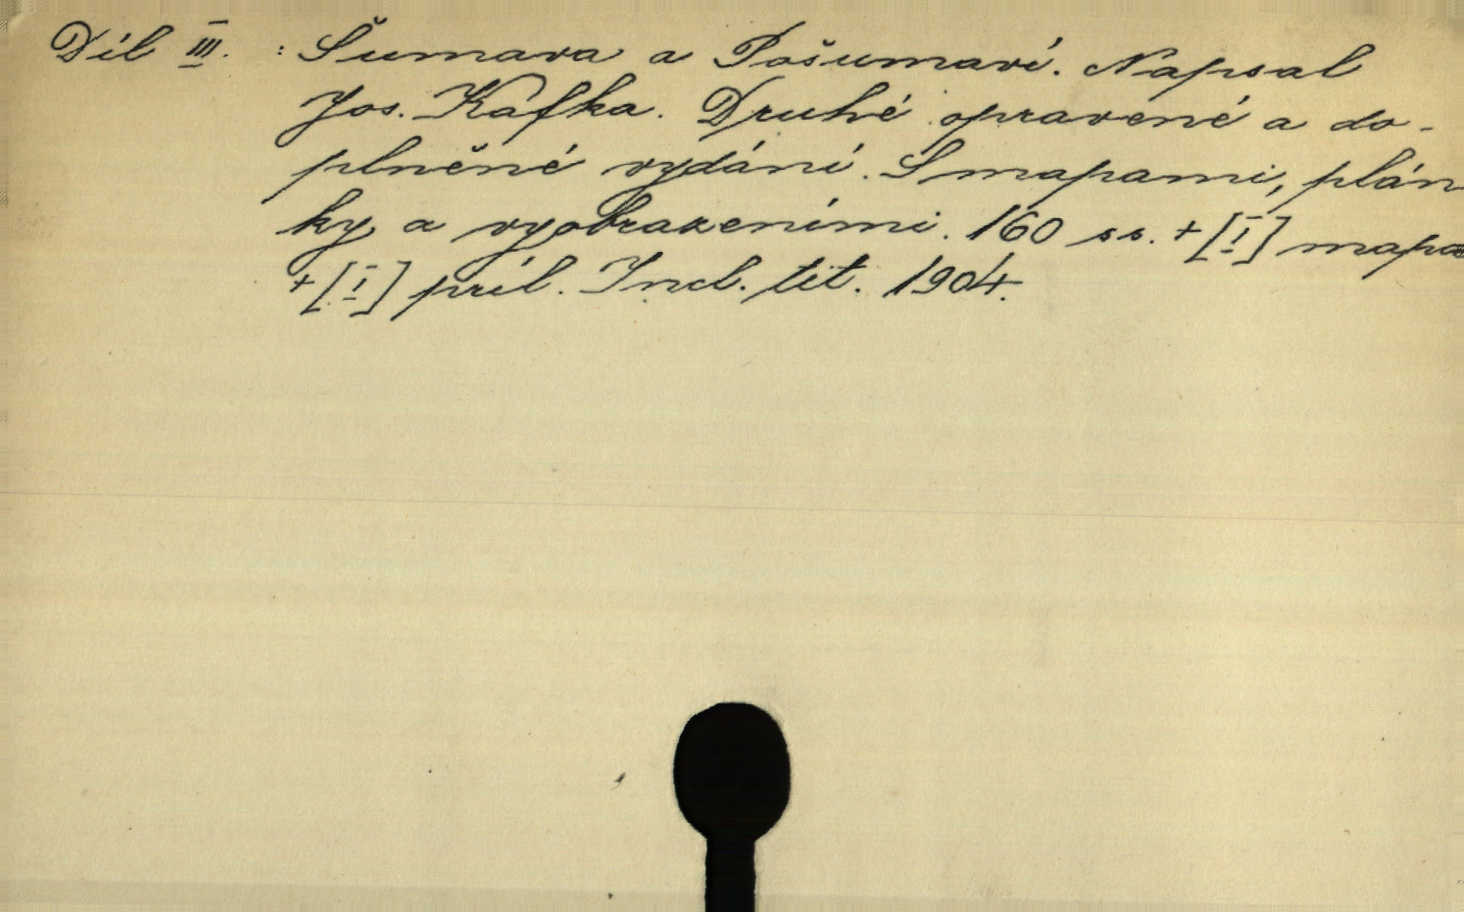 Díl III. : Šumava a Pošumaví. Napsal
Jos. Kafka. Druhé opravené a do-
plněné vydání. S mapami, plán
ky a vyobrazeními. 160 ss. + [I] mapa
+ [I] príl. Incl. tit. 1904.